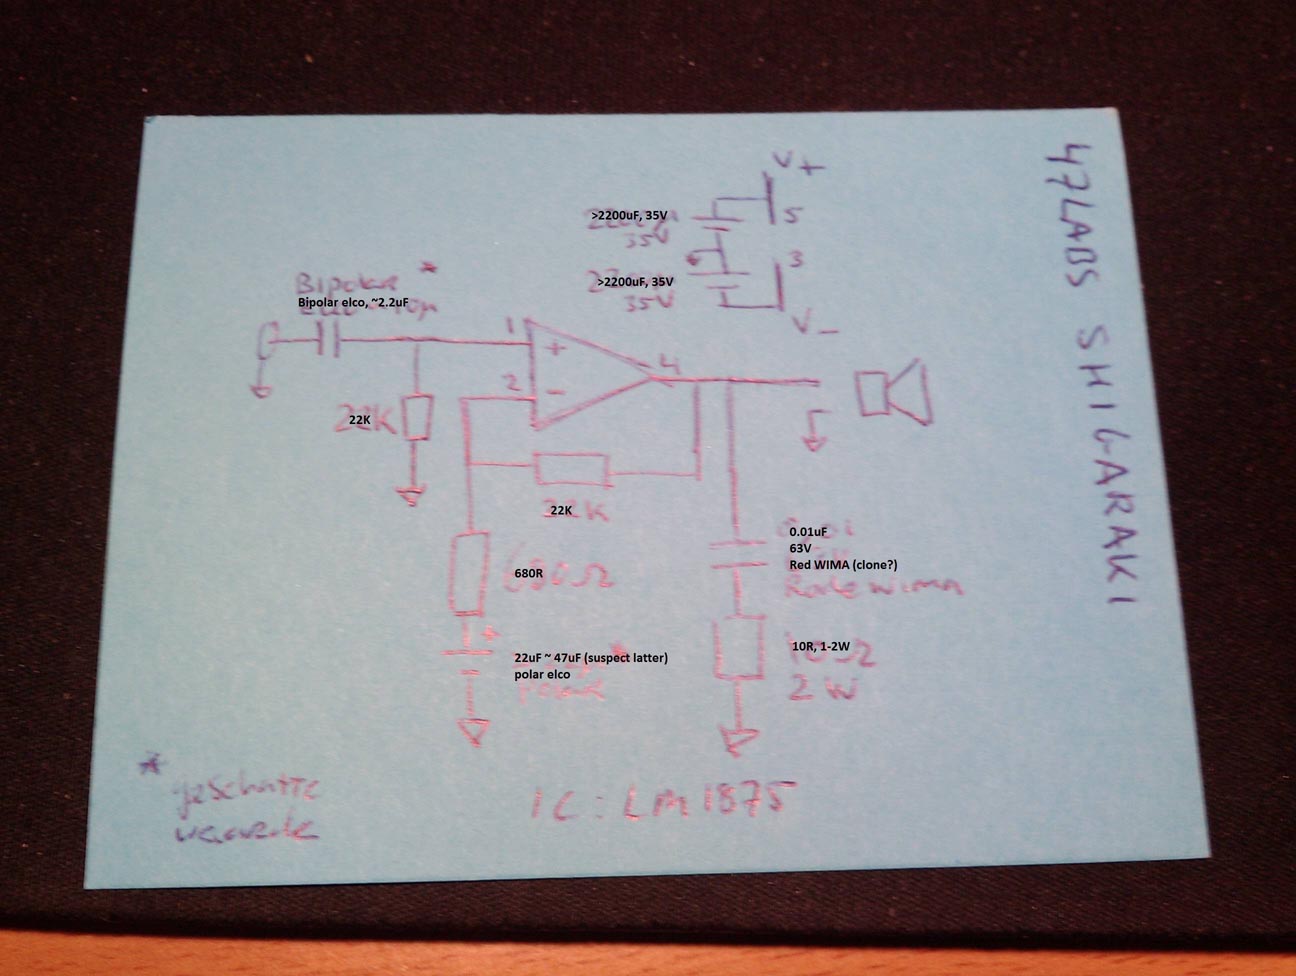 47LABS SHIGARAKI
V+
>2200uF, 35V
35V
5
3
>2200uF, 35V
35V
V-
Bipolar *
Bipolar elco, ~2.2uF
1
+
2
-
4
22K
22K
680R
+
22uF ~ 47uF (suspect latter)
polar elco
0.01uF
63V
Red WIMA (clone?)
Rode wima
10R, 1-2W
2W
* geschatte
waarde
IC: LM1875